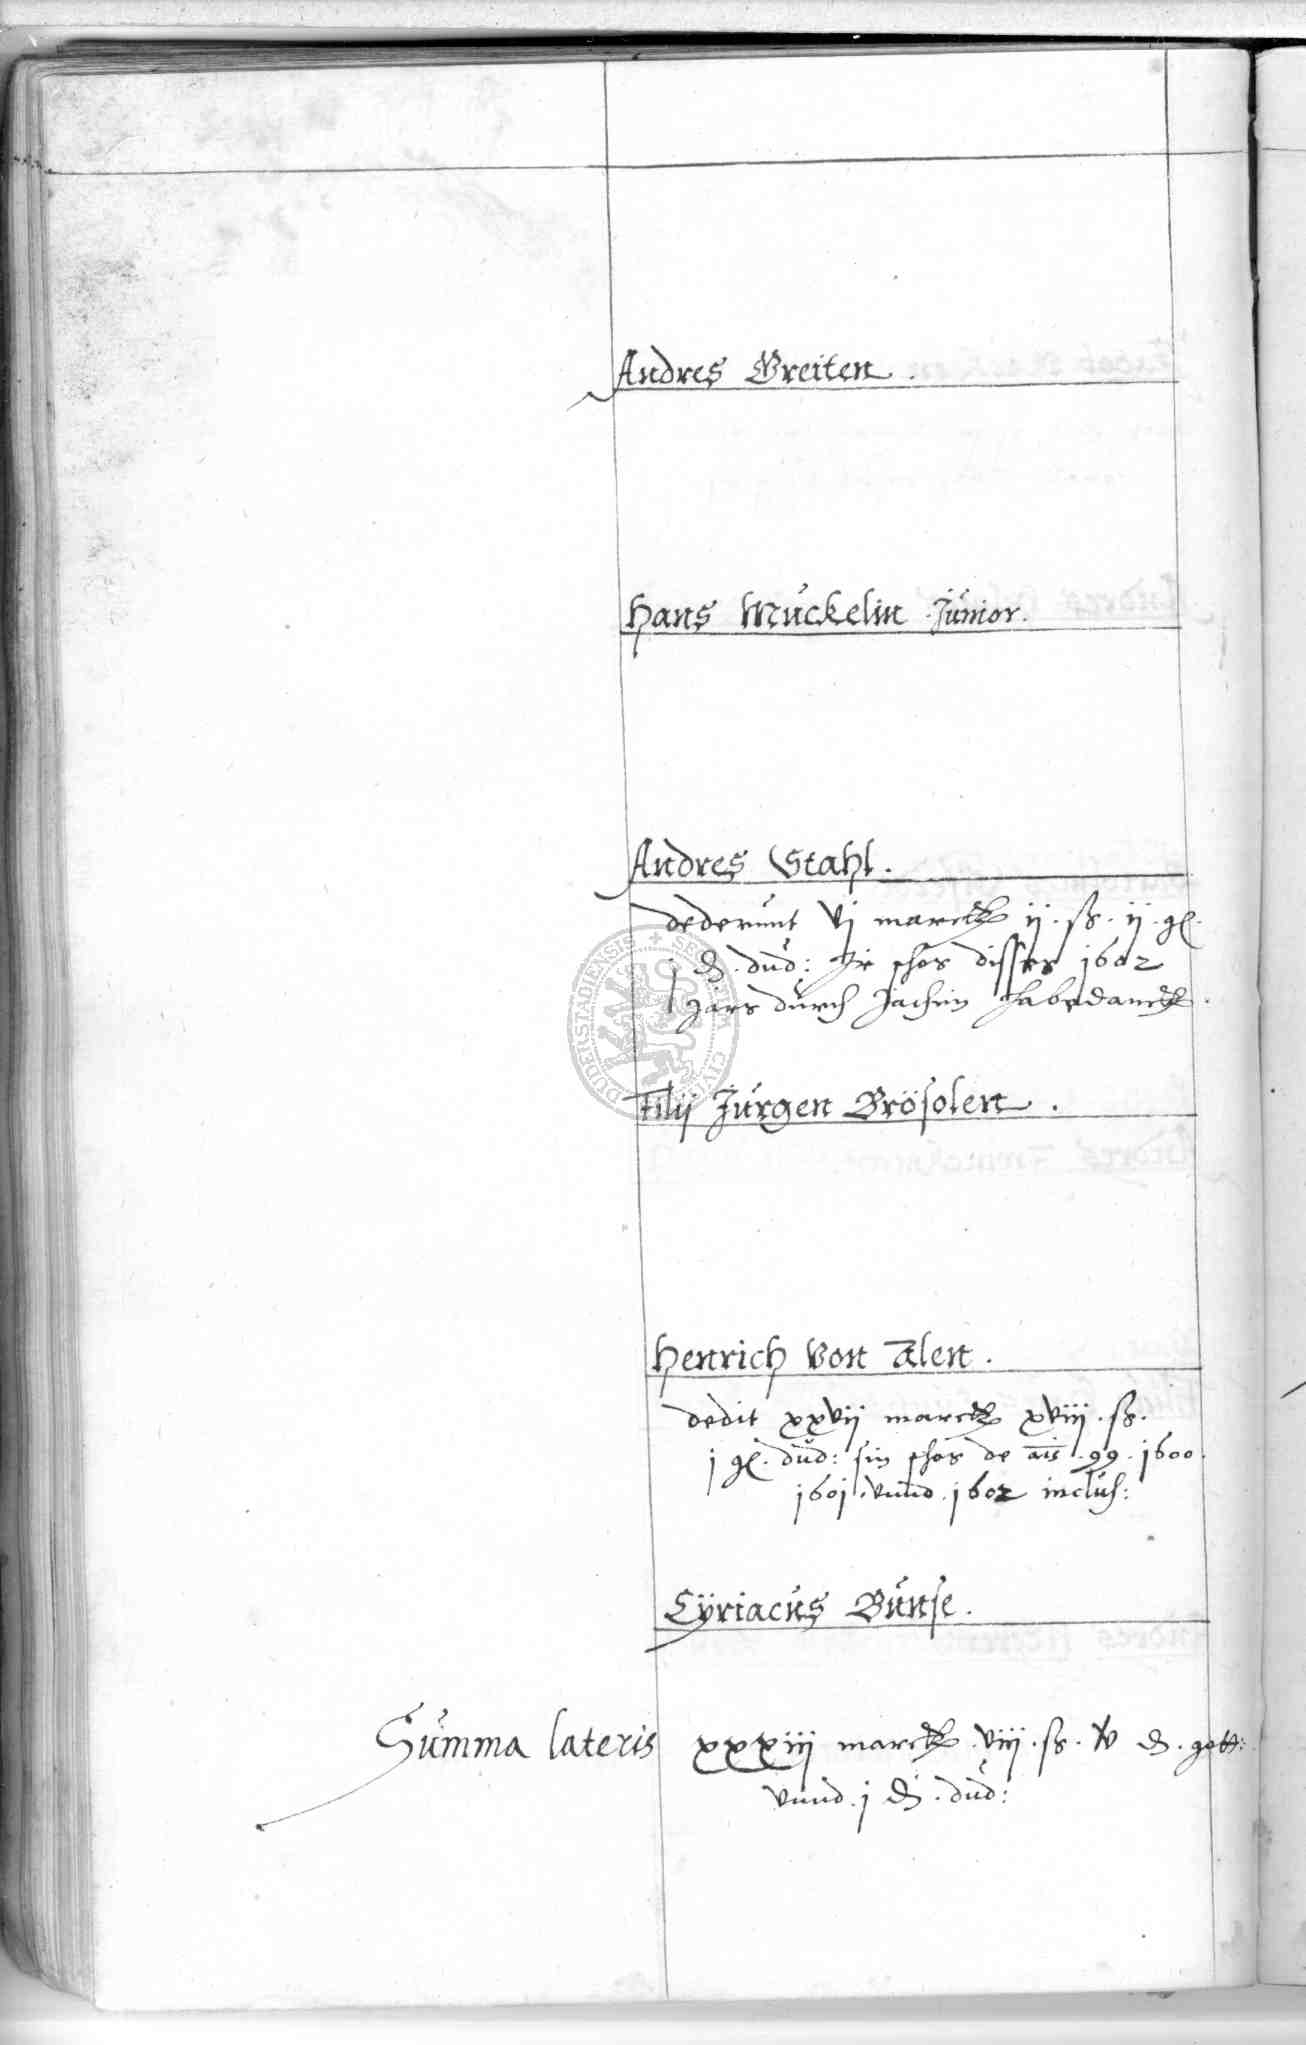 Andres Breiten.
Hans Muckelin Junior.
Andres Stahl.
dederunt vj marck ij. ß. ij. g.
j d. dud: Ir schos disses 1602
jars durch Jachim Habedanck.
Filij Jurgen Brösolen.
Henrich von Alen.
dedit xxvij marck xviij. ß.
j g. dud: sin schos de ais. 99. 1600.
1601. vnnd. 1602 inclus:
Cÿriacus Bunse.
Summa lateris xxxiij marck. viij. ß. iv d. gott:
vnnd. j d. dud:
SECRETUM CIVIUM DUDERSTADIENSIS